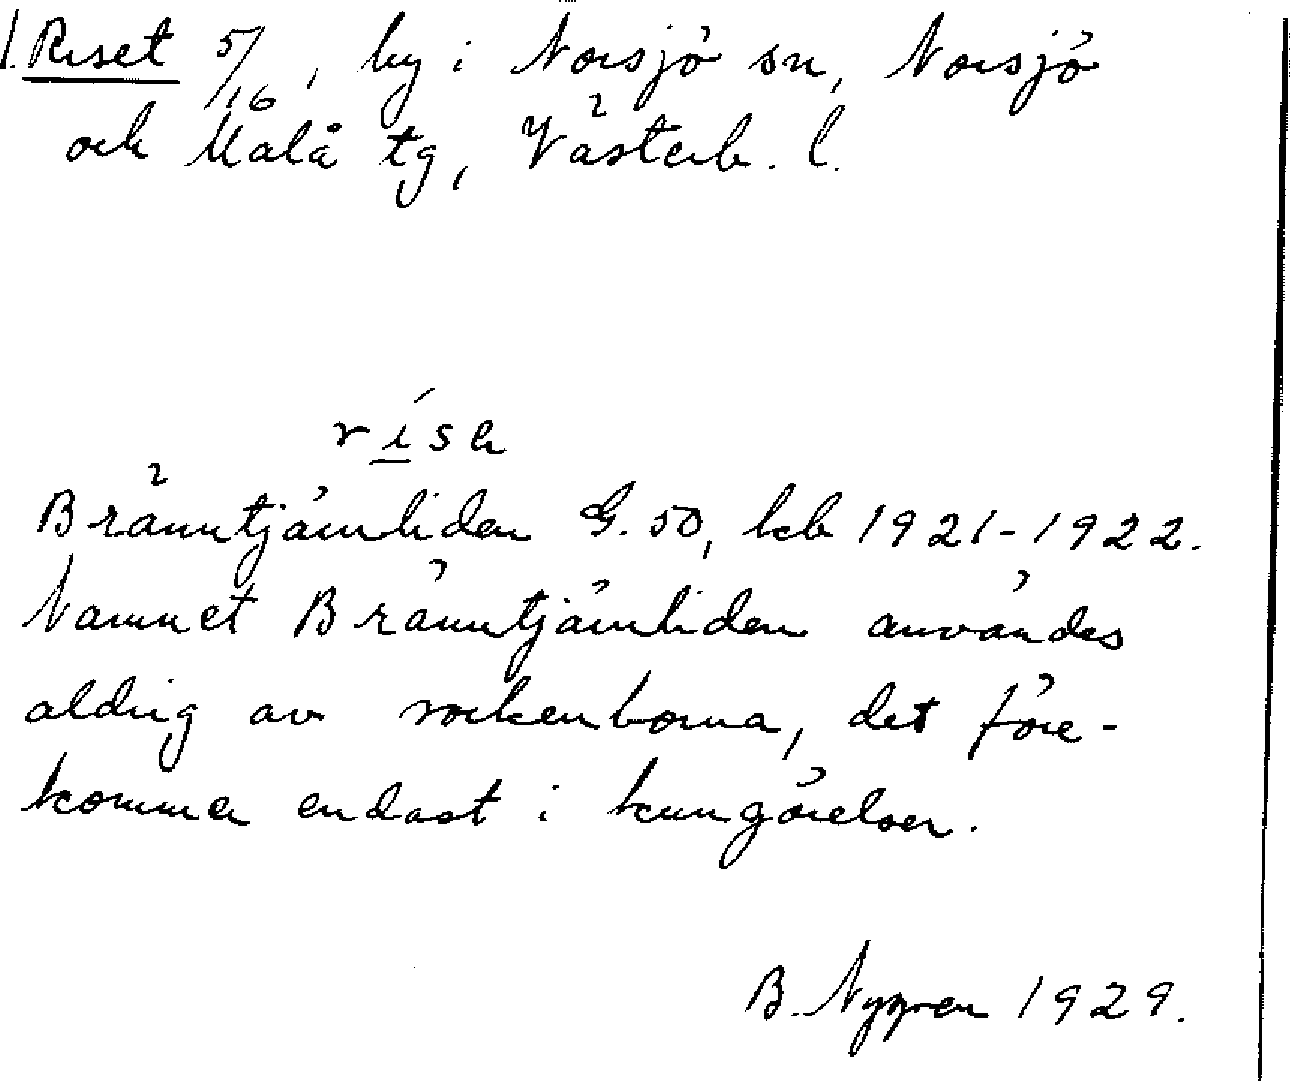 1. Riset 5/16, by i Norsjö sn, Norsjö
och Malå tg, Västerb. l.
rísα
Bränntjärnliden G. 50, kcb 1921-1922.
Namnet Bränntjärnliden användes
aldrig av sockenborna, det före-
kommer endast i kungörelser.
B. Nygren 1929.